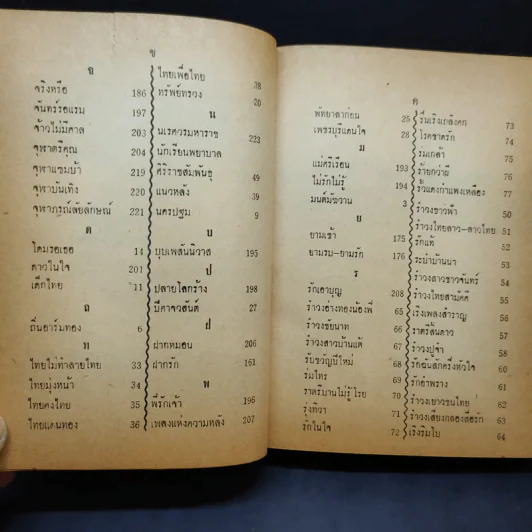 ข
จ
จริงหรือ 186
จันทร์รอแรม 197
จ้าวไม่มีศาล 203
จุฬาตรีคุณ 204
จุฬาแซมบ้า 219
จุฬาบันเทิง 220
จุฬาภรณ์ลัยลักษณ์ 221
ด
โดมรอเธอ 14
ดาวในใจ 201
เด็กไทย 11
ถ
ถิ่นอาร์มทอง 6
ท
ไทยไม่ทำลายไทย 33
ไทยมุ่งหน้า 34
ไทยคงไทย 35
ไทยแดนทอง 36
ไทยเพื่อไทย 38
ทรัพย์ทรวง 20
น
นเรศวรมหาราช 223
นักเรียนพยาบาล
ศิริราชสัมพันธุ์ 49
แนวหลัง 39
นครปฐม 9
บ
บุบเพสันนิวาส 195
ป
ปลายโลกร้าง 198
ปีศาจวสันต์ 27
ฝ
ฝากหมอน 206
ฝากรัก 161
พ
พี่รักเจ้า 196
เพลงแห่งความหลัง 207
พัทยาลาก่อน 25
เพชรบุรีแดนใจ 28
ม
แม่ศรีเรือน 193
ไม่รักไม่รู้ 194
มนต์มัฆวาน 3
ย
ยามเช้า 175
ยามรบ-ยามรัก 176
ร
รักเอาบุญ 208
รำวงอ่างทองน้องพี่ 65
รำวงชัยนาท 66
รำวงสาวบ้านแต้ 67
รับขวัญปีใหม่ 68
ร่มไทร 69
ราตรีบ้านไม่รู้โรย 70
รุ่งทิวา 71
รักในใจ 72
รื่นเริงเถลิงศก 73
โรคชาตรัก 74
ร่มเกล้า 75
ร้ายกว่าผี 76
รั้วแดงกำแพงเหลือง 77
รำวงชาวฟ้า 50
รำวงไทยลาว-ลาวไทย 51
รักแท้ 52
ระบำบ้านนา 53
รำวงสาวชาวจันทร์ 54
รำวงไทยสามัคคี 55
เริงเพลงสำราญ 56
ราตรีสิ้นดาว 57
รำวงปูจ๋า 58
รักฉันสักครึ่งหัวใจ 60
รักอำพราง 61
รำวงเยาวชนไทย 62
รำวงเสียงกลองสื่อรัก 63
เริงริมโบ 64